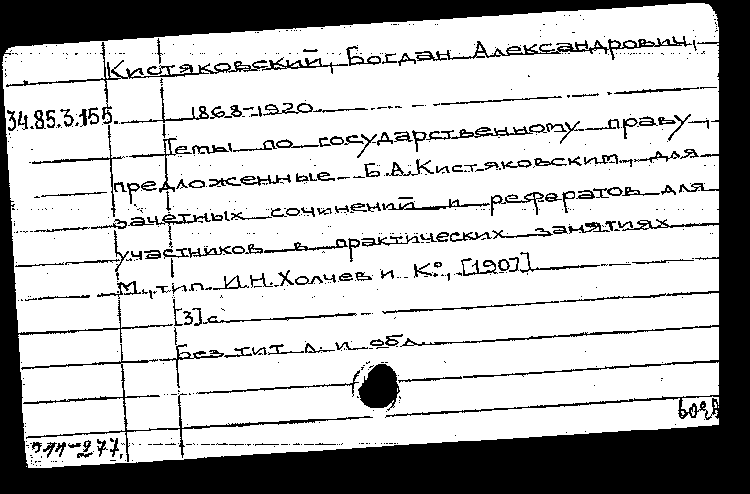 Кистяковский, Богдан Александрович,
34.85.3.155. 1868-1920.
Темы по государственному праву,
предложенные Б.А.Кистяковским, для
зачетных сочинений и рефератов для
участников в практических занятиях
М., тип. И.Н.Холчев и К°, [1907]
[3] с.
Без тит. л. и обл.